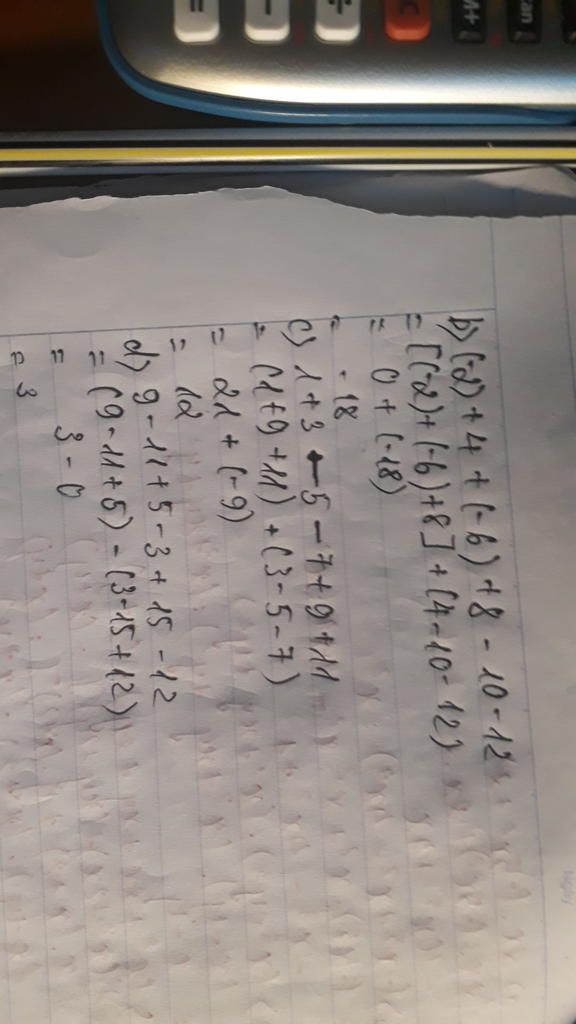 M+
C
÷
−
=
b) (-2) + 4 + (-6) + 8 - 10 - 12
= [(-2) + (-6) + 8] + (4 - 10 - 12)
= 0 + (-18)
= -18
c) 1 + 3 - 5 - 7 + 9 + 11
= (1 + 9 + 11) + (3 - 5 - 7)
= 21 + (-9)
= 12
d) 9 - 11 + 5 - 3 + 15 - 12
= (9 - 11 + 5) - (3 - 15 + 12)
= 3 - 0
= 3